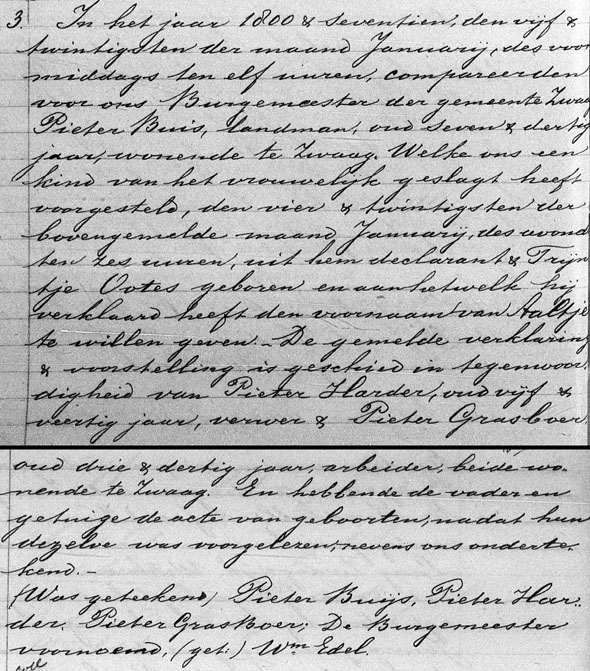 3. In het jaar 1800 & seventien, den vijf &
twintigsten der maand Januarij, des voor
middags ten elf uuren, compareerden
voor ons Burgemeester der gemeente Zwaag
Pieter Buis, landman, oud seven & dertig
jaar, wonende te Zwaag. Welke ons een
kind van het vrouwelijk geslagt heeft
voorgesteld, den vier & twintigsten der
bovengemelde maand Januarij, des avond
ten zes uuren, uit hem declarant & Trijn
tje Ootes geboren en aan hetwelk hij
verklaard heeft den voornaam van Aaltje
te willen geven. - De gemelde verklaring
& voorstelling is geschied in tegenwoor
digheid van Pieter Harder, oud vijf &
veertig jaar, verwer & Pieter Grasboer,
oud drie & dertig jaar, arbeider, beide wo-
nende te Zwaag. En hebbende de vader en
getuige de acte van geboorten, nadat hun
dezelve was voorgelezen, nevens ons onderte-
kend. -
(Was geteekend) Pieter Buijs, Pieter Har-
der. Pieter Grasboer; De Burgemeester
voornoemd, (get:) Wm Edel.